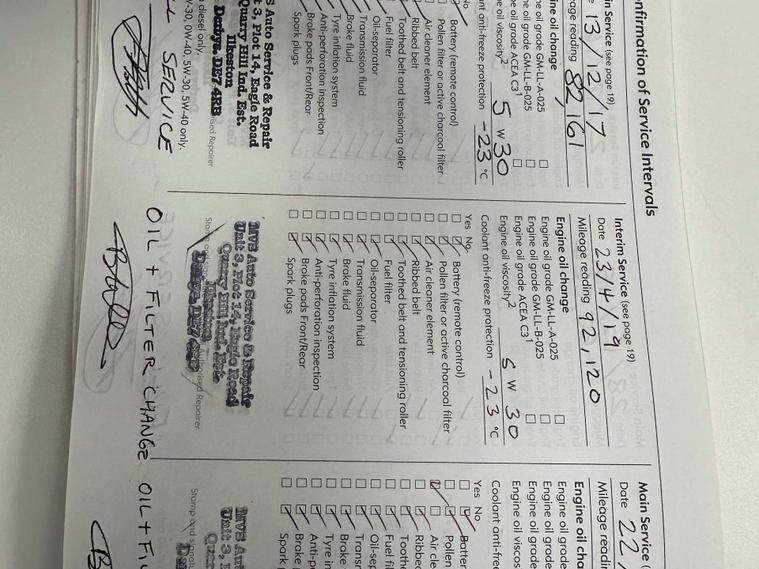 Confirmation of Service Intervals
Main Service (see page 19)
13/12/17
Mileage reading 82,161
Engine oil change
Engine oil grade GM-LL-A-025
Engine oil grade GM-LL-B-025
Engine oil grade ACEA C3¹
Engine oil viscosity² 5 W 30
Coolant anti-freeze protection -23 °C
No
Battery (remote control)
Pollen filter or active charcoal filter
Air cleaner element
Ribbed belt
Toothed belt and tensioning roller
Fuel filter
Oil-separator
Transmission fluid
Brake fluid
Tyre inflation system
Anti-perforation inspection
Brake pads Front/Rear
Spark plugs
Auto Service & Repair
3, Plot 14, Eagle Road
Quarry Hill Ind. Est.
Ilkeston
Derbys, DE7 4RB
Repairer
diesel only.
W-30, 0W-40, 5W-30, 5W-40 only.
SERVICE
Interim Service (see page 19)
Date 23/4/19
Mileage reading 92,120
Engine oil change
Engine oil grade GM-LL-A-025
Engine oil grade GM-LL-B-025
Engine oil grade ACEA C3¹
Engine oil viscosity² 5 W 30
Coolant anti-freeze protection -23 °C
Yes No
Battery (remote control)
Pollen filter or active charcoal filter
Air cleaner element
Ribbed belt
Toothed belt and tensioning roller
Fuel filter
Oil-separator
Transmission fluid
Brake fluid
Tyre inflation system
Anti-perforation inspection
Brake pads Front/Rear
Spark plugs
MVS Auto Service & Repair
Unit 3, Plot 14, Eagle Road
Quarry Hill Ind. Est.
Ilkeston
Repairer
OIL + FILTER CHANGE
Main Service (
Date 22
Mileage readin
Engine oil cha
Engine oil grade
Engine oil grade
Engine oil grade
Engine oil viscos
Coolant anti-free
Yes No
Batter
Pollen
Air cle
Ribbed
Toothe
Fuel fi
Oil-sep
Transm
Brake
Tyre in
Anti-p
Brake
Spark
MVS Au
Unit 3,
Qua
Stamp and
OIL + FIL